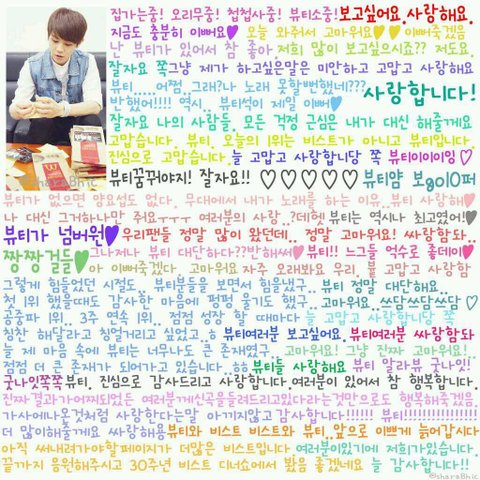 집가는중! 오리무중! 첩첩사중! 뷰티소중!보고싶어요.사랑해요.
지금도 충분히 이뻐요♥ 오늘 와주서 고마워요♥♥이뻐죽겠음
난 뷰티가 있어서 참 좋아 저희 많이 보고싶으시죠?? 저도요.
잘자요 쪽그냥 제가 하고싶은말은 미안하고 고맙고 사랑해요
뷰티.....어쩜.그래?나 노래 못할뻔했네???
반했어!!!! 역시.. 뷰티석이 제일 이뻐♥ 사랑합니다!
잘자요 나의 사람들. 모든 걱정 근심은 내가 대신 해줄게요
고맙습니다. 뷰티. 오늘의 1위는 비스트가 아니고 뷰티입니다
진심으로 고맙습니다.늘 고맙고 사랑합니당 쪽 뷰티이이이잉♡
뷰티꿈꿔야지! 잘자요!! ♡♡♡♡♡뷰티얌 보goI0퍼
뷰티가 없으면 양요섭도 없다. 무대에서 내가 노래를 하는 이유..뷰티 사랑해♥
나 대신 그거하나만 줘요ㅜㅜㅜ 여러분의 사랑..?데헷 뷰티는 역시나 최고였어!♥
뷰티가 넘버원♥우리팬들 정말 많이 왔던데.. 정말 고마워! 싸람해돠..♥
짱짱걸들♥그나저나 뷰티 대단하다??반해써♥뷰티!! 느그들 억수로 좋데이♥
아 이뻐죽겠다. 고마워요 자주 오래봐요 우리. 고맙고 사랑함
그렇게 힘들었던 시절도.. 뷰티분들을 보면서 힘을냈구.. 뷰티 정말 대단해요..
첫 1위 했을때도 감사한 마음에 펑펑 울기도 했구..고마워요..쓰담쓰담쓰담 ♡
공중파 1위.. 3주 연속 1위.. 점점 성장 할 때마다 늘 고맙고 사랑합니당 쪽
칭찬 해달라고 칭얼거리고 싶었고.ㅎ 뷰티여러분 보고싶어요.뷰티여러분 싸랑함돠
늘 제 마음 속에 뷰티는 너무나도 큰 존재였구.. 고마워요! 그냥 진짜 고마워요!
점점 더 큰 존재가 되어가고 있습니다. ㅎㅎ뷰티들 사랑해요 뷰티 알라뷰 굿나잇!
굿나잇쪽쪽뷰티. 진심으로 감사드리고 사랑합니다.여러분이 있어서 참 행복합니다.
진짜 결과가어찌되었든 여러분께신곡을들려드리고있다라는것만으로도 행복해죽겠음
가사에나온것처럼 사랑한다는말 아끼지않고감사합니다!!!!!! 뷰티!!!!!!!!!!!!!!!!!
더 많이해줄게요 싸랑해용뷰티와 비스트 비스트와 뷰티..앞으로 이쁘게 늙어갑시다
아직 써내려가야할페이지가 더많은 비스트입니다 여러분이있기에 저희가있습니다.
끝까지 응원해주시고 30주년 비스트 디너쇼에서 봤음 좋겠네요 늘 감사합니다!!
©sharaBhic
©sharaBhic